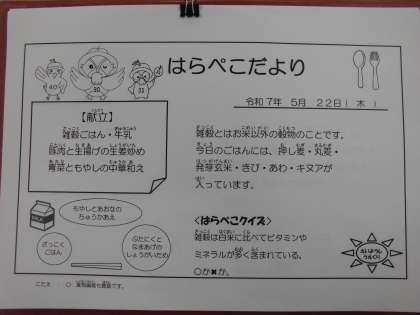 はらぺこだより
令和７年 ５月 ２２日（ 木 ）
【献立】
雑穀ごはん・牛乳
豚肉と生揚げの生姜炒め
青菜ともやしの中華和え
雑穀とはお米以外の穀物のことです。
今日のごはんには、押し麦・丸麦・
発芽玄米・きび・あわ・キヌアが
入っています。
もやしとあおなの
ちゅうかあえ
ざっこく
ごはん
ぶたにくと
なまあげの
しょうがいため
<はらぺこクイズ>
雑穀は白米に比べてビタミンや
ミネラルが多く含まれている。
○か✖か。
こたえ ： ○ 食物繊維も豊富です。